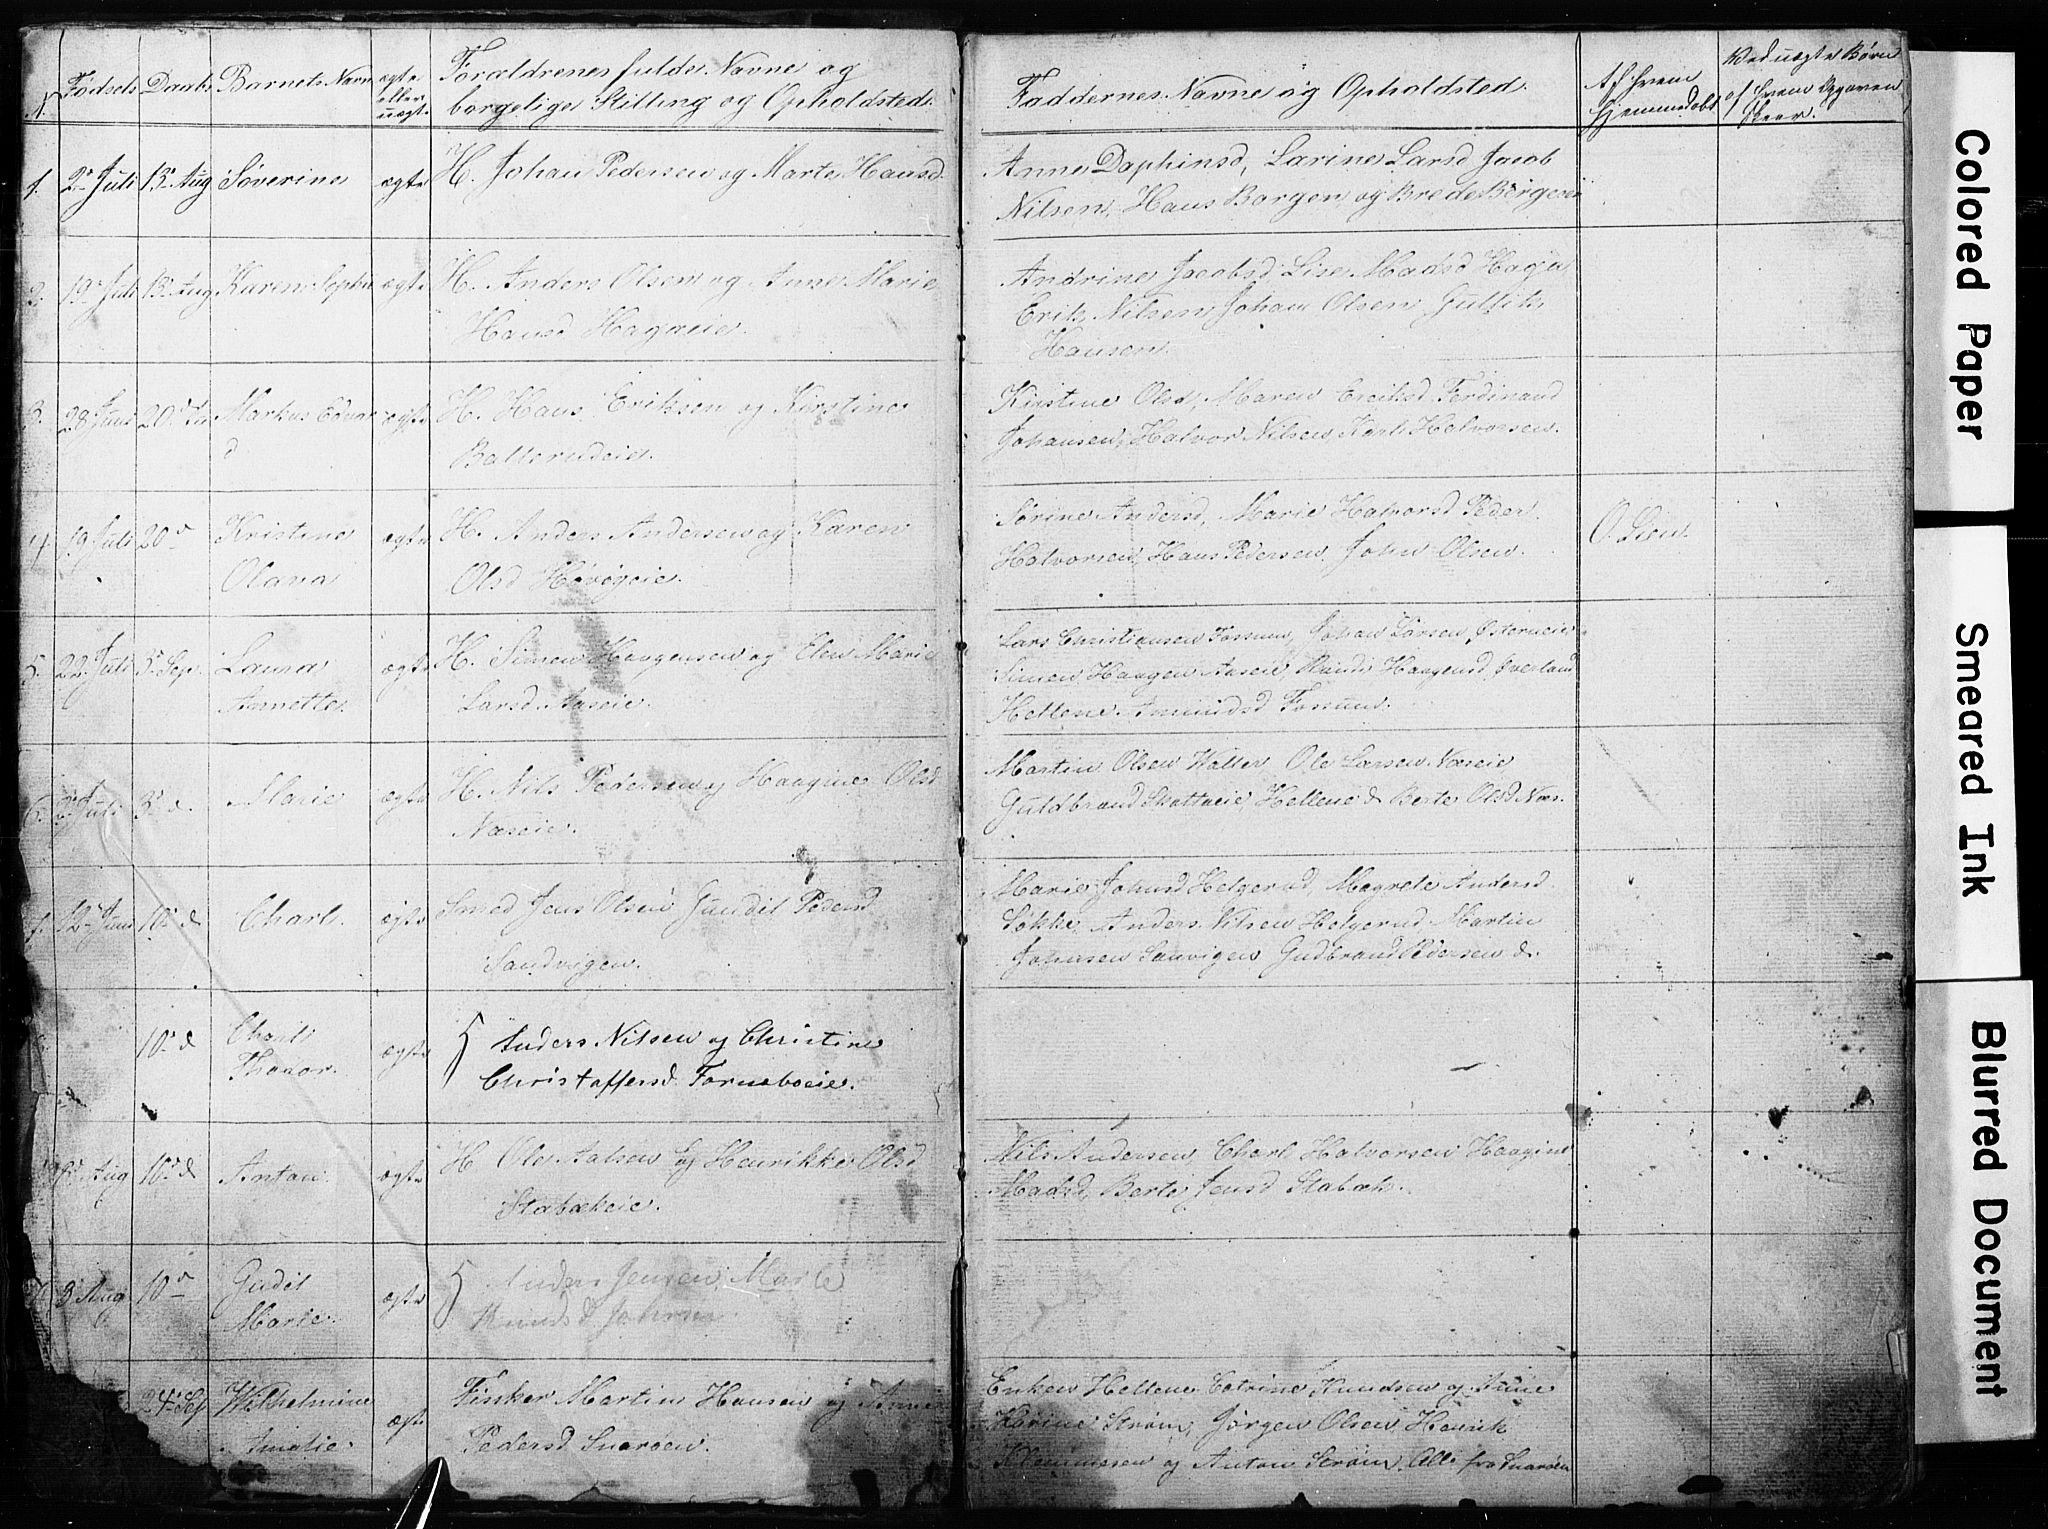 N.
Fødsels
Daabs
Barnets Navn
ægte
eller
uægte
Forældrenes fulde Navne og
borgelige Stilling og Opholdsted.
Faddernes Navne og Opholdsted.
Af hvem
hjemmedøbt
Ved uægte Børn
af hvem Opgaven
skeer.
1. 2 Juli 13 Aug Søverine ægte H. Johan Pedersen og Marte Hansd.
Anne Daphinsd, Larine Larsd Jacob
Nilsen, Hans Borgen og Brede Børgesen
2. 19 Juli 13 Aug Karen Sophie ægte H. Anders Olsen og Anne Marie
Hansd Hagaeie.
Andrine Jacobsd Lise Madsd Haga
Erik Nilsen Johan Olsen Gullik
Hansen.
3. 28 Juni 20 Markus Edvar
d
ægte H. Hans Eriksen og Kirstine
Ballerudeie.
Kirstine Olsd, Maren Eriksd Ferdinand
Johansen, Halvor Nilsen, Karl Halvorsen.
4 19 Juli 20 Kristine
Olava
ægte H. Anders Andersen og Karen
Olsd Høvigeie.
Sørine Andersd, Marie Halvorsd Peder
Halvorsen, Hans Pedersen John Olsen.
O. Lien
5. 22 Juli 3 Sep. Laura
Annette
ægte H. Simen Haagensen og Elen Marie
Larsd Aaseie.
Lars Christiansen Fossum, Johan Larsen, Østerneie
Simen, Haagen Aasen, Randi Haagensd, Øverland
Hellene Amundsd Fossum.
6. 2 Juli 3 d. Marie ægte H. Nils Pedersen og Haagine Olsd
Næseie.
Martin Olsen Waller Ole Larsen Næseie,
Guldbrand Skatteeie, Hellene & Berte Olsd Næs.
12 Juni 10 d Charl. ægte Smed Jens Olsen Gundil Pedersd
Sandvigen.
Marie Johnsd Helgerud, Magrete Andersd
Løkke, Anders Nilsen Helgerud Martin
Johnsen Sanvigen Gudbrand Pedersen d.
10 d Charl
Theodor.
ægte Anders Nilsen og Christine
Christaffersd Forneboeie.
Aug 10 d Anton ægte H. Ole Aalsen og Henrikke Olsd
Stabækeie.
Nils Andersen, Charl Halvorsen Haagine
Madsd, Berte Jensd Stabæk.
8 Aug 10 Gudil
Marie.
ægte Anders Jensen, Marte
Knudsd
24 Sep Wilhelmine
Amalie.
ægte Finker Martin Hansen og Anne
Pedersd Snarøen.
Enken Hellene Catrine Knudsen og Anne
Karine Strøm, Jørgen Olsen, Henrik
Klemmesen og Anton Strøm. Alle fra Snarøen
Colored Paper
Smeared Ink
Blurred Document